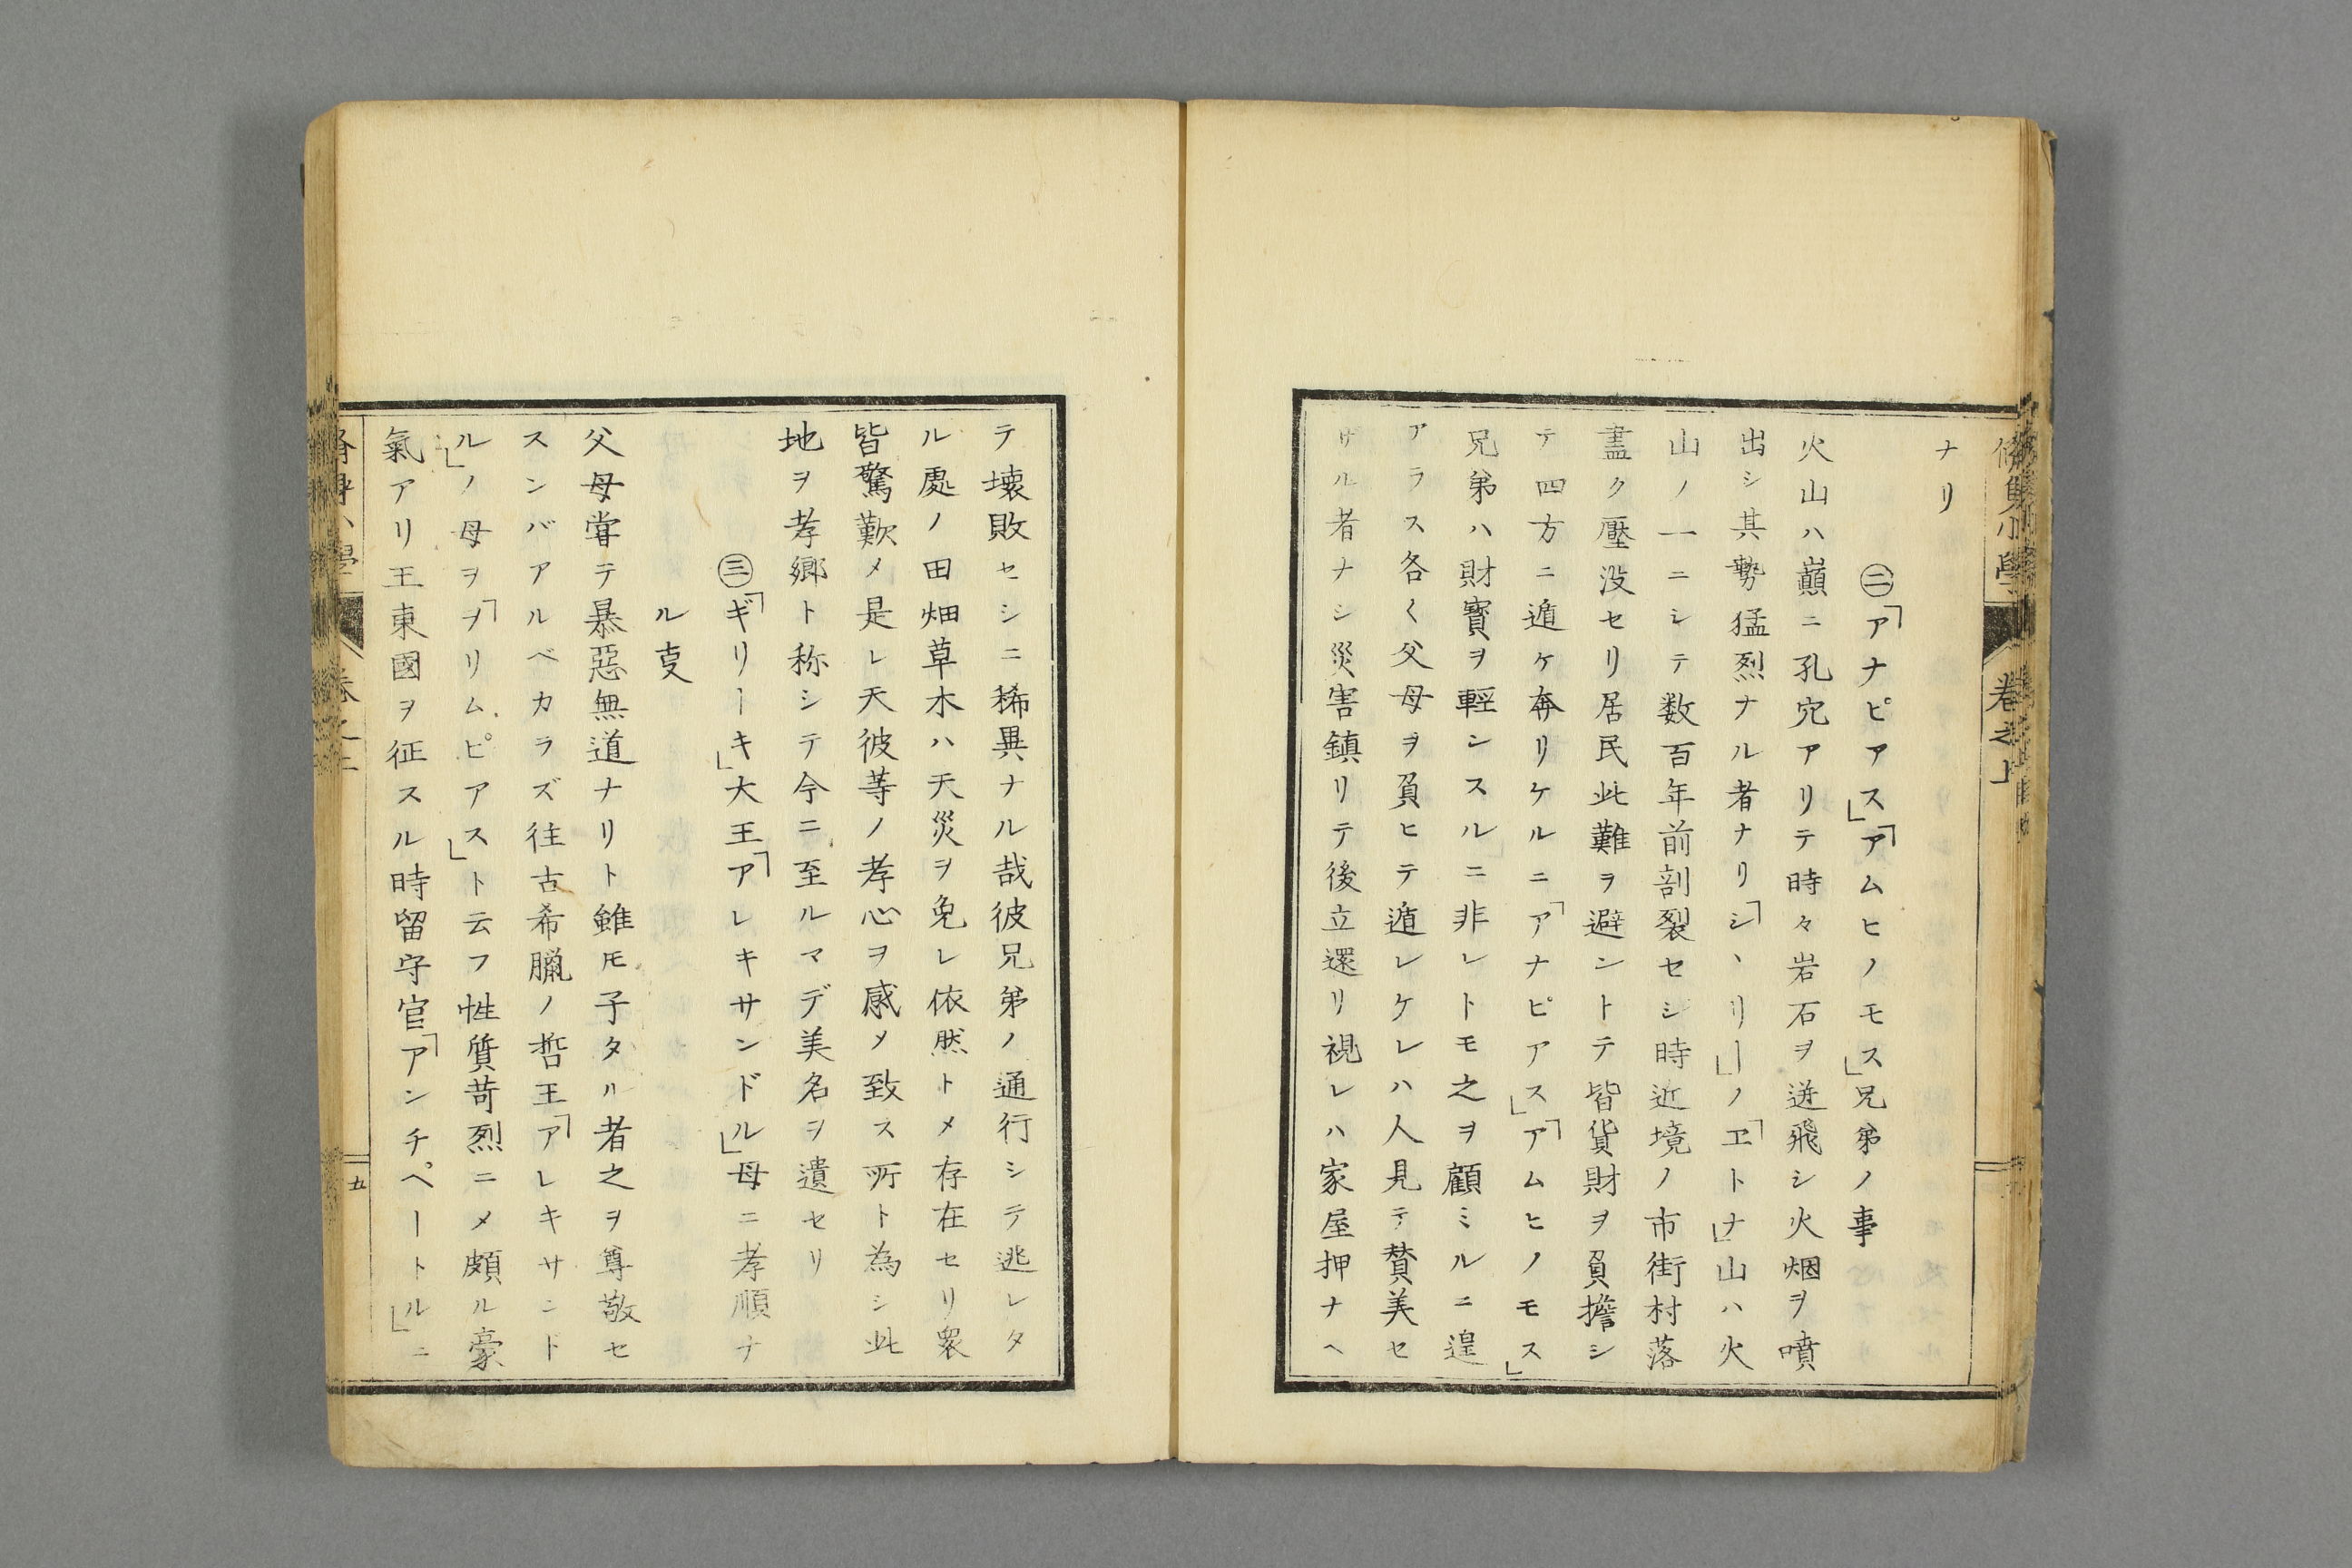 ナリ
㊁「アナピアス」「アムヒノモス」兄弟ノ事
火山ハ巓ニ孔穴アリテ時々岩石ヲ迸飛シ火烟ヲ噴
出シ其勢猛烈ナル者ナリ「シヽリー」ノ「ヱトナ」山ハ火
山ノ一ニシテ数百年前剖裂セシ時近境ノ市街村落
盡ク壓没セリ居民此難ヲ避ントテ皆貨財ヲ負擔シ
テ四方ニ遁ケ奔リケルニ「アナピアス」「アムヒノモス」
兄弟ハ財寳ヲ輕ンスルニ非レトモ之ヲ顧ミルニ遑
アラス各く父母ヲ負ヒテ遁レケレハ人見テ賛美セ
サル者ナシ災害鎮リテ後立還リ視レハ家屋押ナヘ
テ壊敗セシニ稀異ナル哉彼兄弟ノ通行シテ逃レタ
ル處ノ田畑草木ハ天災ヲ免レ依然トメ存在セリ衆
皆驚歎メ是レ天彼等ノ孝心ヲ感メ致ス所ト為シ此
地ヲ孝郷ト称シテ今ニ至ルマデ美名ヲ遺セリ
㊂「ギリーキ」大王「アレキサンドル」母ニ孝順ナ
ル㕝
父母甞テ暴惡無道ナリト雖𪜈子タル者之ヲ尊敬セ
スンバアルベカラズ往古希臘ノ哲王「アレキサンド
ル」ノ母ヲ「ヲリムピアス」ト云フ性質苛烈ニメ頗ル豪
氣アリ王東國ヲ征スル時留守官「アンチペートル」ニ
修身小學
卷之上
五